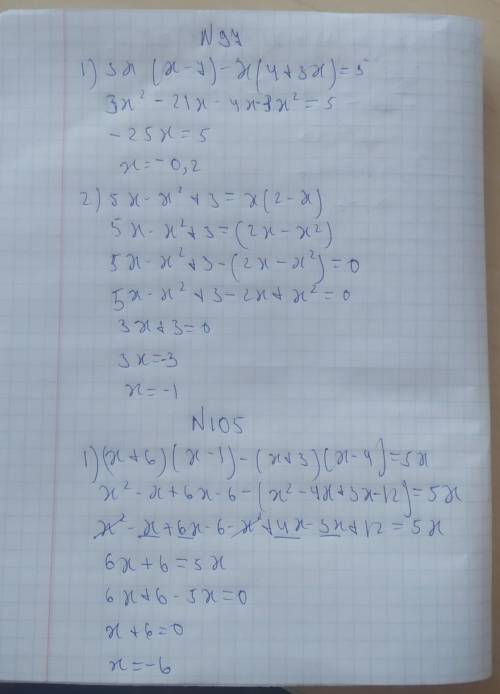 N97
1) 3x (x-7) - x(4+3x)=5
3x² - 21x - 4x-3x² = 5
-25x = 5
x=-0,2
2) 5x - x² + 3 = x(2-x)
5x - x²+3=(2x-x²)
5x-x²+3-(2x-x²)=0
5x-x²+3-2x+x²=0
3x+3=0
3x=-3
x=-1
N105
1)(x+6)(x-1)-(x+3)(x-4)=5x
x²-x+6x-6-(x²-4x+3x-12)=5x
x²-x+6x-6-x²+4x-3x+12=5x
6x+6=5x
6x+6-5x=0
x+6=0
x=-6